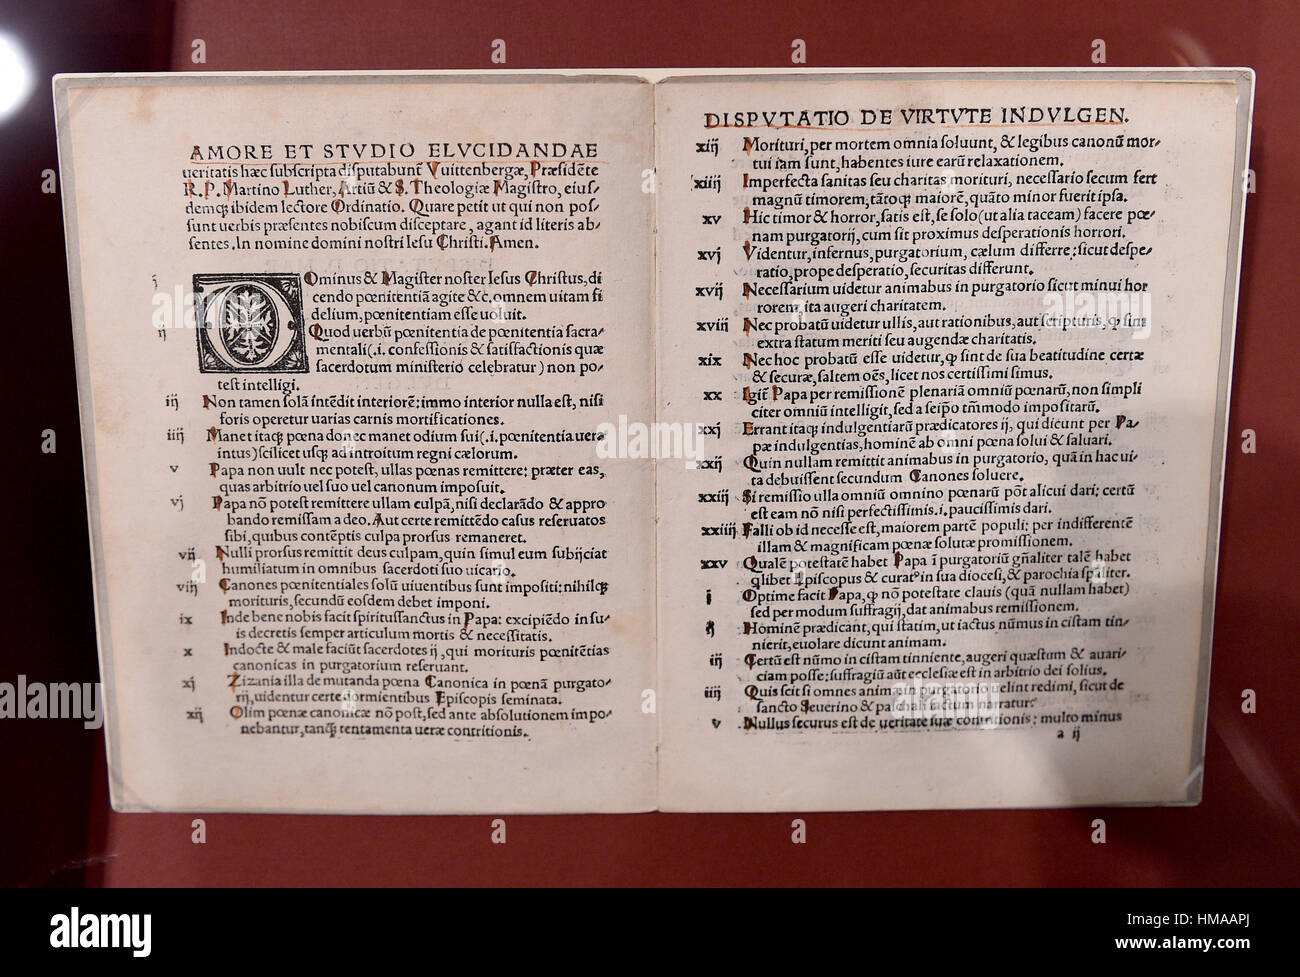 AMORE ET STVDIO ELVCIDANDAE
ueritatis hæc subscripta disputabunt Vuittenbergæ, Præsidẽte
R.P. Martino Luther, Artiũ & S. Theologiæ Magistro, eius⸗
demq; ibidem lectore Ordinatio. Quare petit ut qui non pos⸗
sunt uerbis præsentes nobiscum disceptare, agant id literis ab⸗
sentes. In nomine domini nostri Iesu Christi. Amen.
i DOminus & Magister noster Iesus Christus, di
cendo pœnitentiã agite &c. omnem uitam fi
delium, pœnitentiam esse uoluit.
ij Quod uerbũ pœnitentia de pœnitentia sacra⸗
mentali (.i. confessionis & satisfactionis quæ
sacerdotum ministerio celebratur) non po⸗
test intelligi.
iij Non tamen solã intẽdit interiorẽ: immo interior nulla est, nisi
foris operetur uarias carnis mortificationes.
iiij Manet itaq; pœna donec manet odium sui (.i. pœnitentia uera
intus) scilicet usq; ad introitum regni cælorum.
v Papa non uult nec potest, ullas pœnas remittere: præter eas,
quas arbitrio uel suo uel canonum imposuit.
vj Papa nõ potest remittere ullam culpã, nisi declarãdo & appro
bando remissam a deo. Aut certe remittẽdo casus reseruatos
sibi, quibus contẽptis culpa prorsus remaneret.
vij Nulli prorsus remittit deus culpam, quin simul eum subijciat
humiliatum in omnibus sacerdoti suo uicario.
viij Canones pœnitentiales solũ uiuentibus sunt impositi: nihilq;
morituris, secundũ eosdem debet imponi.
ix Inde bene nobis facit spiritussanctus in Papa: excipiẽdo in su⸗
is decretis semper articulum mortis & necessitatis.
x Indocte & male faciũt sacerdotes ij, qui morituris pœnitẽtias
canonicas in purgatorium reseruant.
xj Zizania illa de mutanda pœna Canonica in pœnã purgato⸗
rij, uidentur certe dormientibus Episcopis seminata.
xij Olim pœnæ canonicæ nõ post, sed ante absolutionem impo⸗
nebantur, tanq̃ tentamenta ueræ contritionis.
DISPVTATIO DE VIRTVTE INDVLGEN.
xiij Morituri, per mortem omnia soluunt, & legibus canonũ mor⸗
tui iam sunt, habentes iure earũ relaxationem.
xiiij Imperfecta sanitas seu charitas morituri, necessario secum fert
magnũ timorem, tãtoq; maiorẽ, quãto minor fuerit ipsa.
xv Hic timor & horror, satis est, se solo (ut alia taceam) facere pœ⸗
nam purgatorij, cum sit proximus desperationis horrori.
xvj Videntur, infernus, purgatorium, cælum differre: sicut despe⸗
ratio, prope desperatio, securitas differunt.
xvij Necessarium uidetur animabus in purgatorio sicut minui hor
rorem, ita augeri charitatem.
xviij Nec probatũ uidetur ullis, aut rationibus, aut scripturis, ꝙ sint
extra statum meriti seu augendæ charitatis.
xix Nec hoc probatũ esse uidetur, ꝙ sint de sua beatitudine certæ
& securæ, saltem oẽs, licet nos certissimi simus.
xx Igit̃ Papa per remissionẽ plenariã omniũ pœnarũ, non simpli
citer omniũ intelligit, sed a seip̃o tm̃modo impositarũ.
xxj Errant itaq; indulgentiarũ prædicatores ij, qui dicunt per Pa⸗
pæ indulgentias, hominẽ ab omni pœna solui & saluari.
xxij Quin nullam remittit animabus in purgatorio, quã in hac ui⸗
ta debuissent secundum Canones soluere.
xxiij Si remissio ulla omniũ omnino pœnarũ põt alicui dari: certũ
est eam nõ nisi perfectissimis .i. paucissimis dari.
xxiiij Falli ob id necesse est, maiorem partẽ populi: per indifferentẽ
illam & magnificam pœnæ solutæ promissionem.
xxv Qualẽ potestatẽ habet Papa ĩ purgatoriũ gñaliter talẽ habet
q̃libet Episcopus & curat⁹ in sua diocesi, & parochia sp̃aliter.
j Optime facit Papa, ꝙ nõ potestate clauis (quã nullam habet)
sed per modum suffragij, dat animabus remissionem.
ij Hominẽ prædicant, qui statim, ut iactus nũmus in cistam tin⸗
nierit, euolare dicunt animam.
iij Certũ est nũmo in cistam tinniente, augeri quæstum & auari⸗
ciam posse: suffragiũ aũt ecclesiæ est in arbitrio dei solius.
iiij Quis scit si omnes animæ in purgatorio uelint redimi, sicut de
sancto Seuerino & paschali factum narratur.
v Nullus securus est de ueritate suæ contritionis: multo minus
a ij
a
alamy
Image ID: HMAAPJ
www.alamy.com